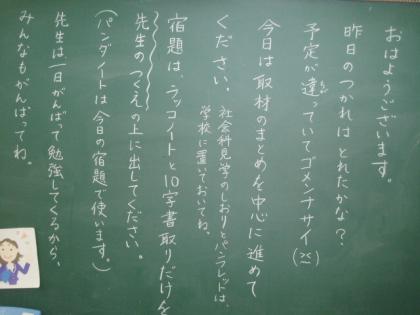 おはようございます。
昨日のつかれは とれたかな？
予定が違っていてゴメンナサイ
今日は取材のまとめを中心に進めて
ください。
社会科見学のしおりとパンフレットは、
学校に置いておいてね。
宿題は、ラッコノートと10字書取りだけを
先生のつくえの上に出してください。
（パンダノートは今日の宿題で使います。）
先生は一日がんばって勉強してくるから、
みんなもがんばってね。